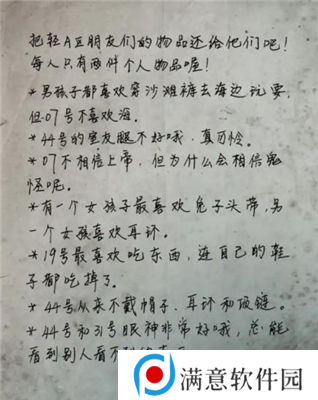 把轻A区朋友们的物品还给他们吧！
每人只有两件个人物品喔！
*男孩子都喜欢穿沙滩裤去海边玩耍，
但07号不喜欢海。
*44号的室友腿不好哦，真可怜。
*07不相信上帝，但为什么会相信鬼
怪呢。
*有一个女孩子最喜欢兔子头带，另
一个女孩喜欢耳环。
*19号最喜欢吃东西，连自己的鞋
子都吃掉了。
*44号从来不戴帽子、耳环和项链。
*44号和31号眼神非常好哦，总能
看到别人看不
满意软件园